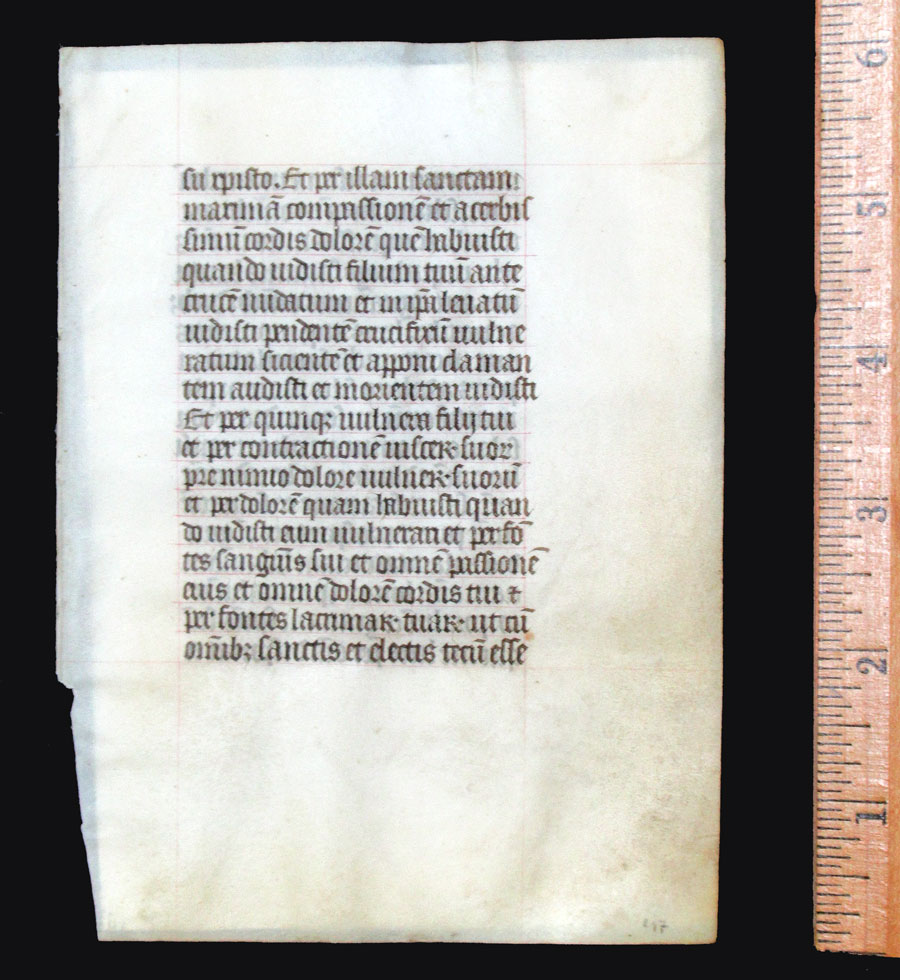 su xpisto. Et per illam sanctam
maximā compassionē et acerbis
simū cordis dolorē quē habuisti
quando uidisti filium tuū ante
crucē nudatum et in ip̄i leuatū
uidisti pendentē crucifixū uulne
ratum sicientē et apponi claman
tem audisti et morientem uidisti
Et per quinqꝫ uulnera filij tui
et per contractionē uisceꝝ suoꝝ
pre nimio dolore uulneꝝ suorū
et per dolorē quam habuisti quan
do uidisti eum uulnerari et per fō
tes sanguīs sui et omnē passionē
eius et omnē dolorē cordis tui ⁊
per fontes lacrimaꝝ tuaꝝ ut cū
om̄ibꝫ sanctis et electis tecū esse
6
5
4
3
2
1